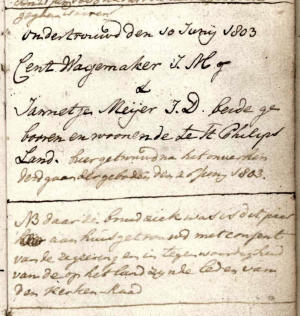 ondertrouwd den 10 Junij 1803
Cent Wagemaker J. M. of
&
Jannetje Meijer J. D. beide ge
booren en woonende te St Philips
Land. hier getrouwd na het onverhin
derd gaan der geboden den 26 Junij 1803.
NB daar de bruid ziek was is dit paar
aan huis getrouwd met consent
van de regeering en in tegenwoordigheid
van de op het land zijnde leden van
den Kerken-Raad